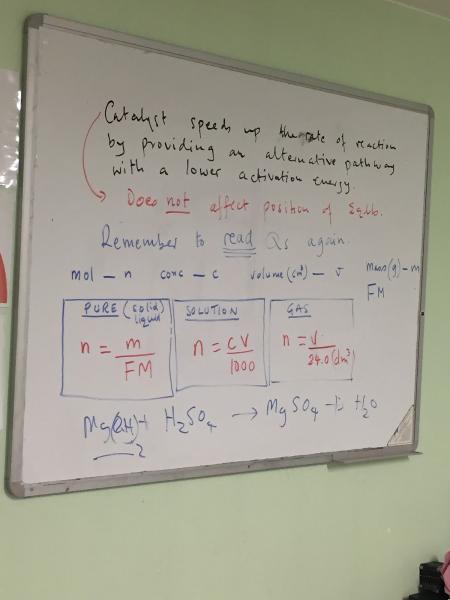 Catalyst speeds up the rate of reaction
by providing an alternative pathway
with a lower activation energy.
Does not affect position of Eqlb.
Remember to read Qs again.
mol - n conc - c volume (cm³) - v mass (g) - m
FM
PURE (solid liquid)
n = m/FM
SOLUTION
n = cv/1000
GAS
n = v/24.0 (dm³)
Mg(OH)₂ + H₂SO₄ → MgSO₄ + H₂O